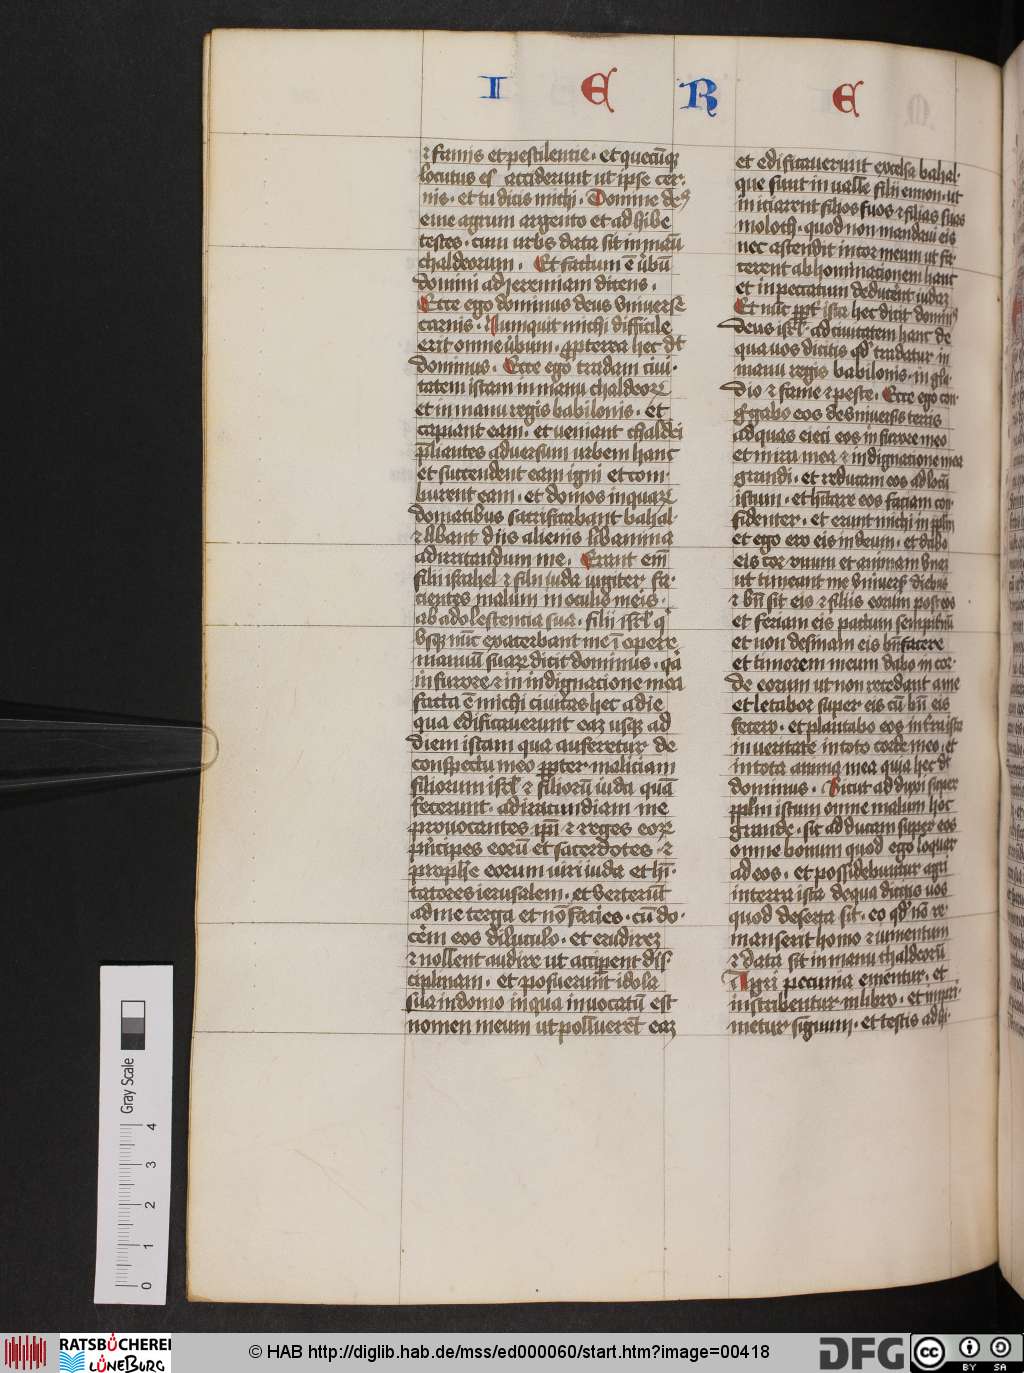 I E R E
⁊ famis et pestilentie · et quecūq̄
locutus es acciderunt ut ipse cer·
nis · et tu dicis michi · Domine deꝰ
eme agrum argento et adhibe
testes · cum urbs data sit in manū
chaldeorum · Et factum ē v̄bū
domini ad jeremiam dicens ·
Ecce ego dominus deus vniuerse
carnis · Numquit michi difficile
erit omne v̄bum · ꝓpterea hec dt̄
dominus · Ecce ego tradam ciui·
tatem istam in manu chaldeoꝝ
et in manu regis babilonis · et
capiant eam · et ueniant chaldei
p̄liantes aduersum urbem hanc
et succendent eam igni et com·
burent eam · et domos in quaꝝ
domatibus sacrificabant bahal·
⁊ libant dijs alienis libamina
ad irritandum me · Erant em̄
filii israhel ⁊ filii iuda iugiter fa·
cientes malum in oculis meis ·
ab adolescentia sua · filii isrl̄ qͥ
vsqꝫ nūc exacerbant me ī opere
manuū suaꝝ dicit dominus · qͣ
in furore ⁊ in indignacione mea
facta ē michi ciuitas hec a die
qua edificauerunt eaꝫ usqꝫ ad
diem istam qua auferetur de
conspectu meo ꝓpter maliciam
filiorum isrl̄ ⁊ filiorū iuda quā
fecerunt · ad iracundiam me
prouocantes ip̄i ⁊ reges eoꝝ
prīcipes eorū et sacerdotes · ⁊
prophē eorum uiri iuda et hī·
tatores ierusalem · et verterūt
ad me terga et nō facies · cū do·
cērem eos diluculo · et erudireꝫ
⁊ nollent audire ut acciperent dis·
ciplinam · et posuerunt idola
sua in domo in qua inuocatū est
nomen meum ut polluerēt eaꝫ
et edificauerunt excelsa bahal·
que sunt in ualle filii ennon · ut
iniciarent filios suos ⁊ filias suas
moloch · quod non mandaui eis
nec ascendit in cor meum ut fa·
cerent abhominationem hanc
et in peccatum deducērent iudaꝫ
Et nūc ꝓpt̄ ista hec dicit dominꝰ
deus isrl̄ · ad ciuitatem hanc de
qua uos dicitis qd̄ tradatur in
manu regis babilonis · in gla·
dio ⁊ fame ⁊ peste · Ecce ego con·
g̅gabo eos de vniuersis terris
ad quas eieci eos in furore meo
et in ira mea ⁊ in dignacione mea
grandi · et reducam eos ad locū
istum · et hītare eos faciam con·
fidenter · et erunt michi in pp̄lm
et ego ero eis in deum · et dabo
eis cor vnum et animam vnaꝫ
ut timeant me vniuers̄ diebus
⁊ bn̄ sit eis ⁊ filiis eorum post eos
et feriam eis pactum sempitnū
et non desinam eis bn̄facere
et timorem meum dabo in cor·
de eorum ut non recedant a me
et letabor super eis cū bn̄ eis
fecero · et plantabo eos in terra ista
in ueritate in toto corde meo · et
in tota anima mea quia hec dt̄
dominus · Sicut adduxi super
pp̄lm istum omne malum hoc
grande · sic adducam super eos
omne bonum quod ego loquor
ad eos · et possidebuntur agri
in terra ista de qua dicitis uos
quod deserta sit · eo qd̄ nō re·
manserit homo ⁊ iumentum
⁊ data sit in manu chaldeorū
Agri pecunia ementur · et
inscribentur in libro · et impri·
metur signum · et testis adhi·
Gray Scale
0 1 2 3 4
RATSBÜCHEREI
LÜNEBURG
© HAB http://diglib.hab.de/mss/ed000060/start.htm?image=00418
DFG
cc BY SA